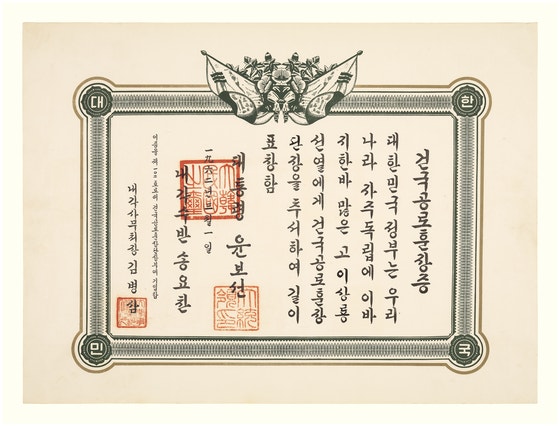 대한민국
건국공로훈장증
대한민국정부는 우리
나라 자주독립에 이바
지한바 많은 고 이상룡
선열에게 건국공로훈장
단장을 추서하여 길이
표창함
대통령 윤보선
大統領印
一九六二년三월一일
내각수반 송요찬
내각사무처장 김병삼